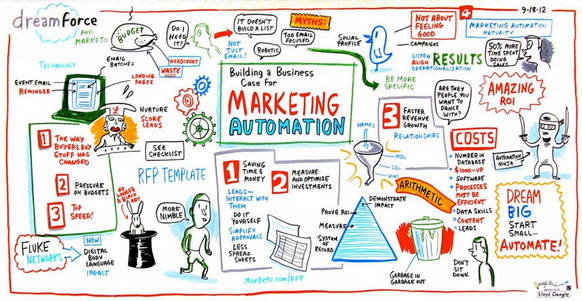 dreamforce
AND
MARKETO
BUDGET
DO I
NEED IT?
NOT JUST
EMAIL!
IT DOESN'T
BUILD A LIST
MYTHS:
TOO EMAIL
FOCUSED
ROBOTIC
HEADCOUNT
WASTE
SOCIAL
PROFILE
NOT ABOUT
FEELING
GOOD
4
CAMPAIGNS
LISTEN
ALIGN
OPERATIONALIZATION
RESULTS
BE MORE
SPECIFIC
MARKETING AUTOMATION
MATURITY
9-18-12
50% MORE
TIME SPENT
DOING
SALES
AMAZING
ROI
TECHNOLOGY
EMAIL
BATCHES
LANDING
PAGES
EVENT EMAIL
REMINDER
NURTURE
SCORE
LEADS
Building a Business
Case For
MARKETING
AUTOMATION
3
FASTER
REVENUE
GROWTH
RELATIONSHIPS
ARE THEY
PEOPLE YOU
WANT TO
DANCE WITH?
NAMES
MQL
SQL
WINS
COSTS
• NUMBER IN
DATABASE
• $1000-UP
• SOFTWARE
• PROCESSES
MUST BE
EFFICIENT
• DATA SKILLS
• CONTENT
• LEADS
AUTOMATION
NINJA
1 THE WAY
BUYERS BUY
STUFF HAS
CHANGED
2 PRESSURE
ON BUDGETS
3 TOP
SPEED!
SEE
CHECKLIST
RFP TEMPLATE
NO
LONGER A
BLACK
ART
MORE
NIMBLE
1
SAVING
TIME &
MONEY
LEADS—
INTERACT WITH
THEM
DO IT
YOURSELF
SIMPLIFY
APPROVALS
LESS
SPREAD
SHEETS
2
MEASURE
AND OPTIMIZE
INVESTMENTS
Marketo.com/RFP
ARITHMETIC
DEMONSTRATE
IMPACT
PROVE ROI
MEASURE
SYSTEM
OF RECORD
GARBAGE IN
GARBAGE OUT
DON'T
SIT
DOWN
DREAM
BIG
START
SMALL—
AUTOMATE!
FLUKE
NETWORKS
NOW
DIGITAL
BODY
LANGUAGE
IMPACT
Lloyd Dangle